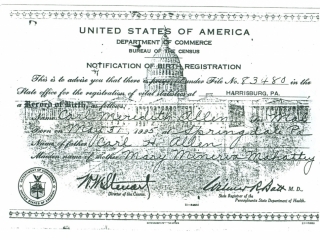 UNITED STATES OF AMERICA
DEPARTMENT OF COMMERCE
BUREAU OF THE CENSUS
NOTIFICATION OF BIRTH REGISTRATION
This is to advise you that there is under File No. 83480 in the
State office for the registration of vital statistics at HARRISBURG, PA.
a Record of Birth, as follows:
Allen
Born on May 31 1905 at Springdale Pa
Name of father Carl H. Allen
Maiden name of mother Mary Minerva
W.M. Steuart
Director of the Census.
M.D.
State Registrar of the
Pennsylvania State Department of Health.